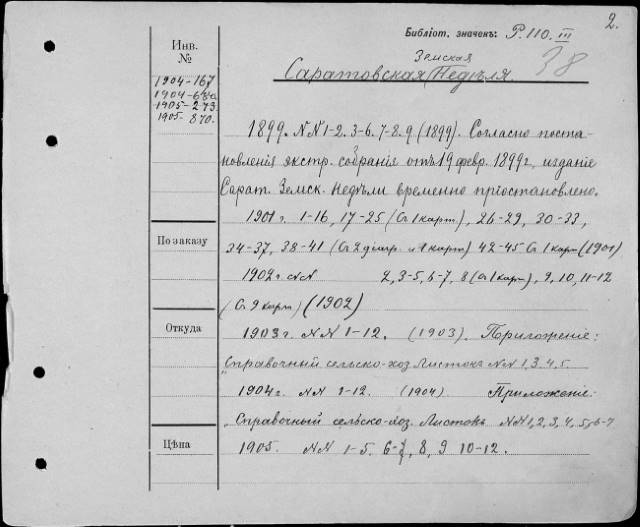 2.
Библіот. значекъ: Р. 110. III
38
Инв.
№
1904-167
1904-68a
1905-273
1905-870.
Земская
Саратовская Недѣля
1899. NN 1-2. 3-6. 7-8. 9 (1899). Согласно поста-
новленія экстр. собранія отъ 19 февр. 1899г. изданіе
Сарат. Земск. Недѣли временно пріостановлено.
1901 г. 1-16, 17-25 (Съ 1 карт.), 26-29, 30-33,
По заказу
34-37, 38-41 (Съ 2 діагр. и 1 карт) 42-45 Съ 1 карт (1901)
1902 г. NN 2, 3-5, 6-7, 8 (Съ 1 карт), 9, 10, 11-12
(Съ 2 карт) (1902)
Откуда
1903 г. NN 1-12. (1903). Приложеніе:
"Справочный сельско-хоз Листокъ NN 1, 3, 4, 5
1904 г. NN 1-12. (1904) Приложеніе:
"Справочный сельско-хоз. Листокъ NN 1, 2, 3, 4, 5, 6-7
Цѣна
1905. NN 1-5. 6-7, 8, 9 10-12.